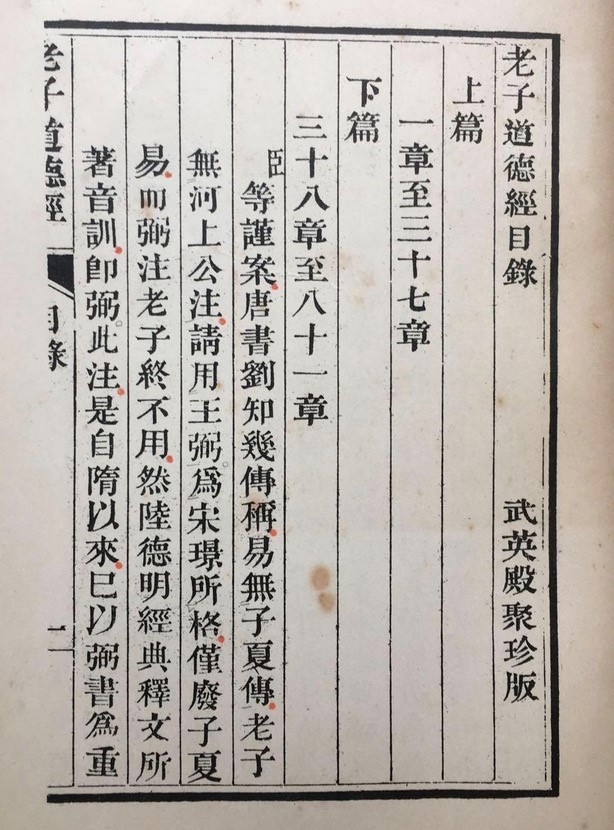 老子道德經目錄 武英殿聚珍版
上篇
一章至三十七章
下篇
三十八章至八十一章
臣等謹案唐書劉知幾傳稱易無子夏傳老子
無河上公注請用王弼爲宋璟所格僅廢子夏
易而弼注老子終不用然陸德明經典釋文所
著音訓卽弼此注是自隋以來已以弼書爲重
老子道德經 目錄 二